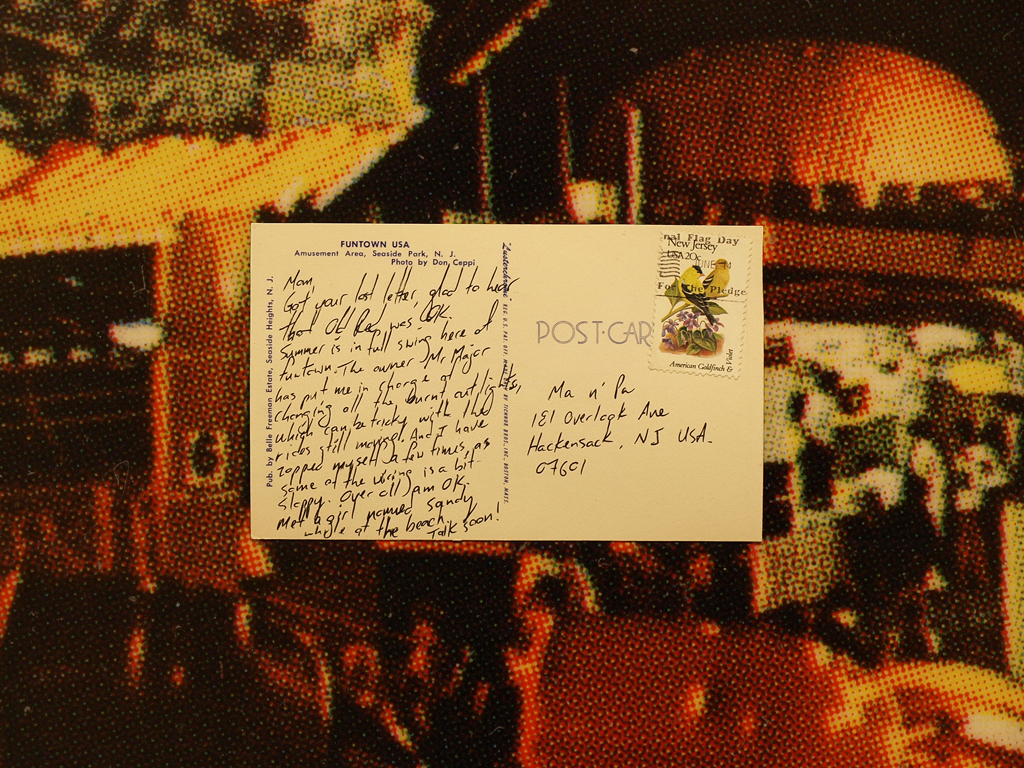 FUNTOWN USA
Amusement Area, Seaside Park, N. J.
Photo by Don Ceppi
Pub. by Belle Freeman Estate, Seaside Heights, N. J.
Mom,
Got your last letter, glad to hear
that Old Red was OK.
Summer is in full swing here at
funtown. The owner Mr Major
has put me in charge of
changing all the burnt out lights,
which can be tricky with the
rides still moving. And I have
zapped myself a few times, as
some of the wiring is a bit
sloppy. Over all I am OK.
Met a girl named Sandy
while at the beach.
Talk soon!
REG. U.S. PAT. OFF. MADE BY TICHNOR BROS., INC., BOSTON, MASS.
POST CAR
nal Flag Day
New Jersey
USA 20c
JUNE 14
For The Pledge
American Goldfinch &
Violet
Ma n' Pa
181 Overlook Ave
Hackensack, NJ USA.
07601